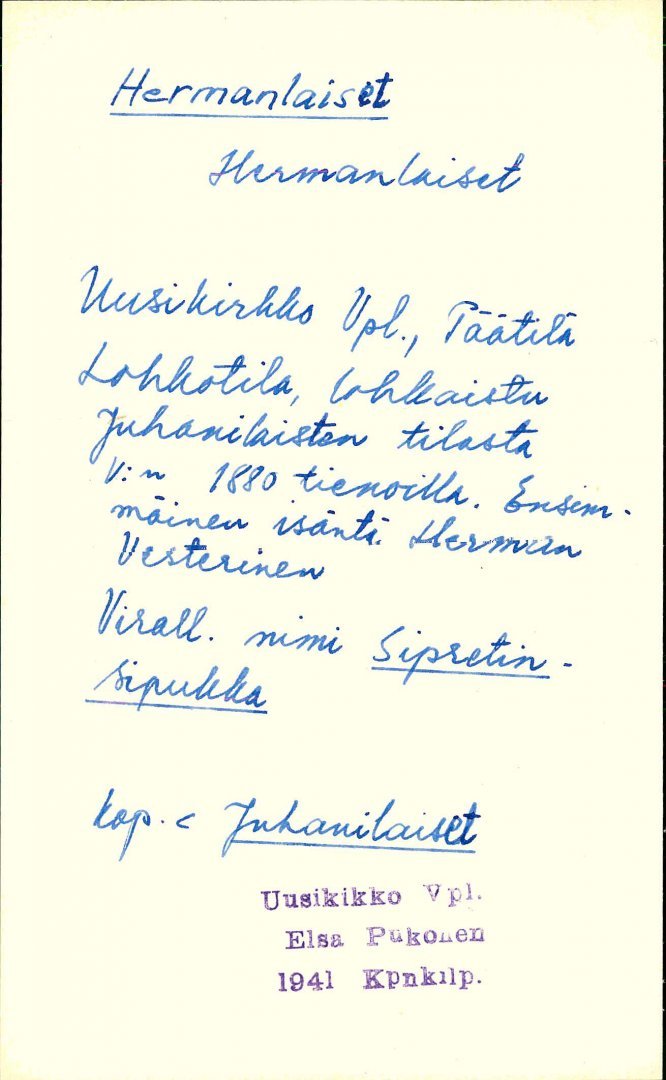 Hermanlaiset
Hermanlaiset
Uusikirkko Vpl., Päätilä
Lohkotila, lohkaistu
Juhanilaisten tilasta
v:n 1880 tienoilla. Ensim-
mäinen isäntä Herman
Vesterinen
Virall. nimi Sipretin-
sipukka
kop. < Juhanilaiset
Uusikikko Vpl.
Elsa Pukonen
1941 Kpnkilp.